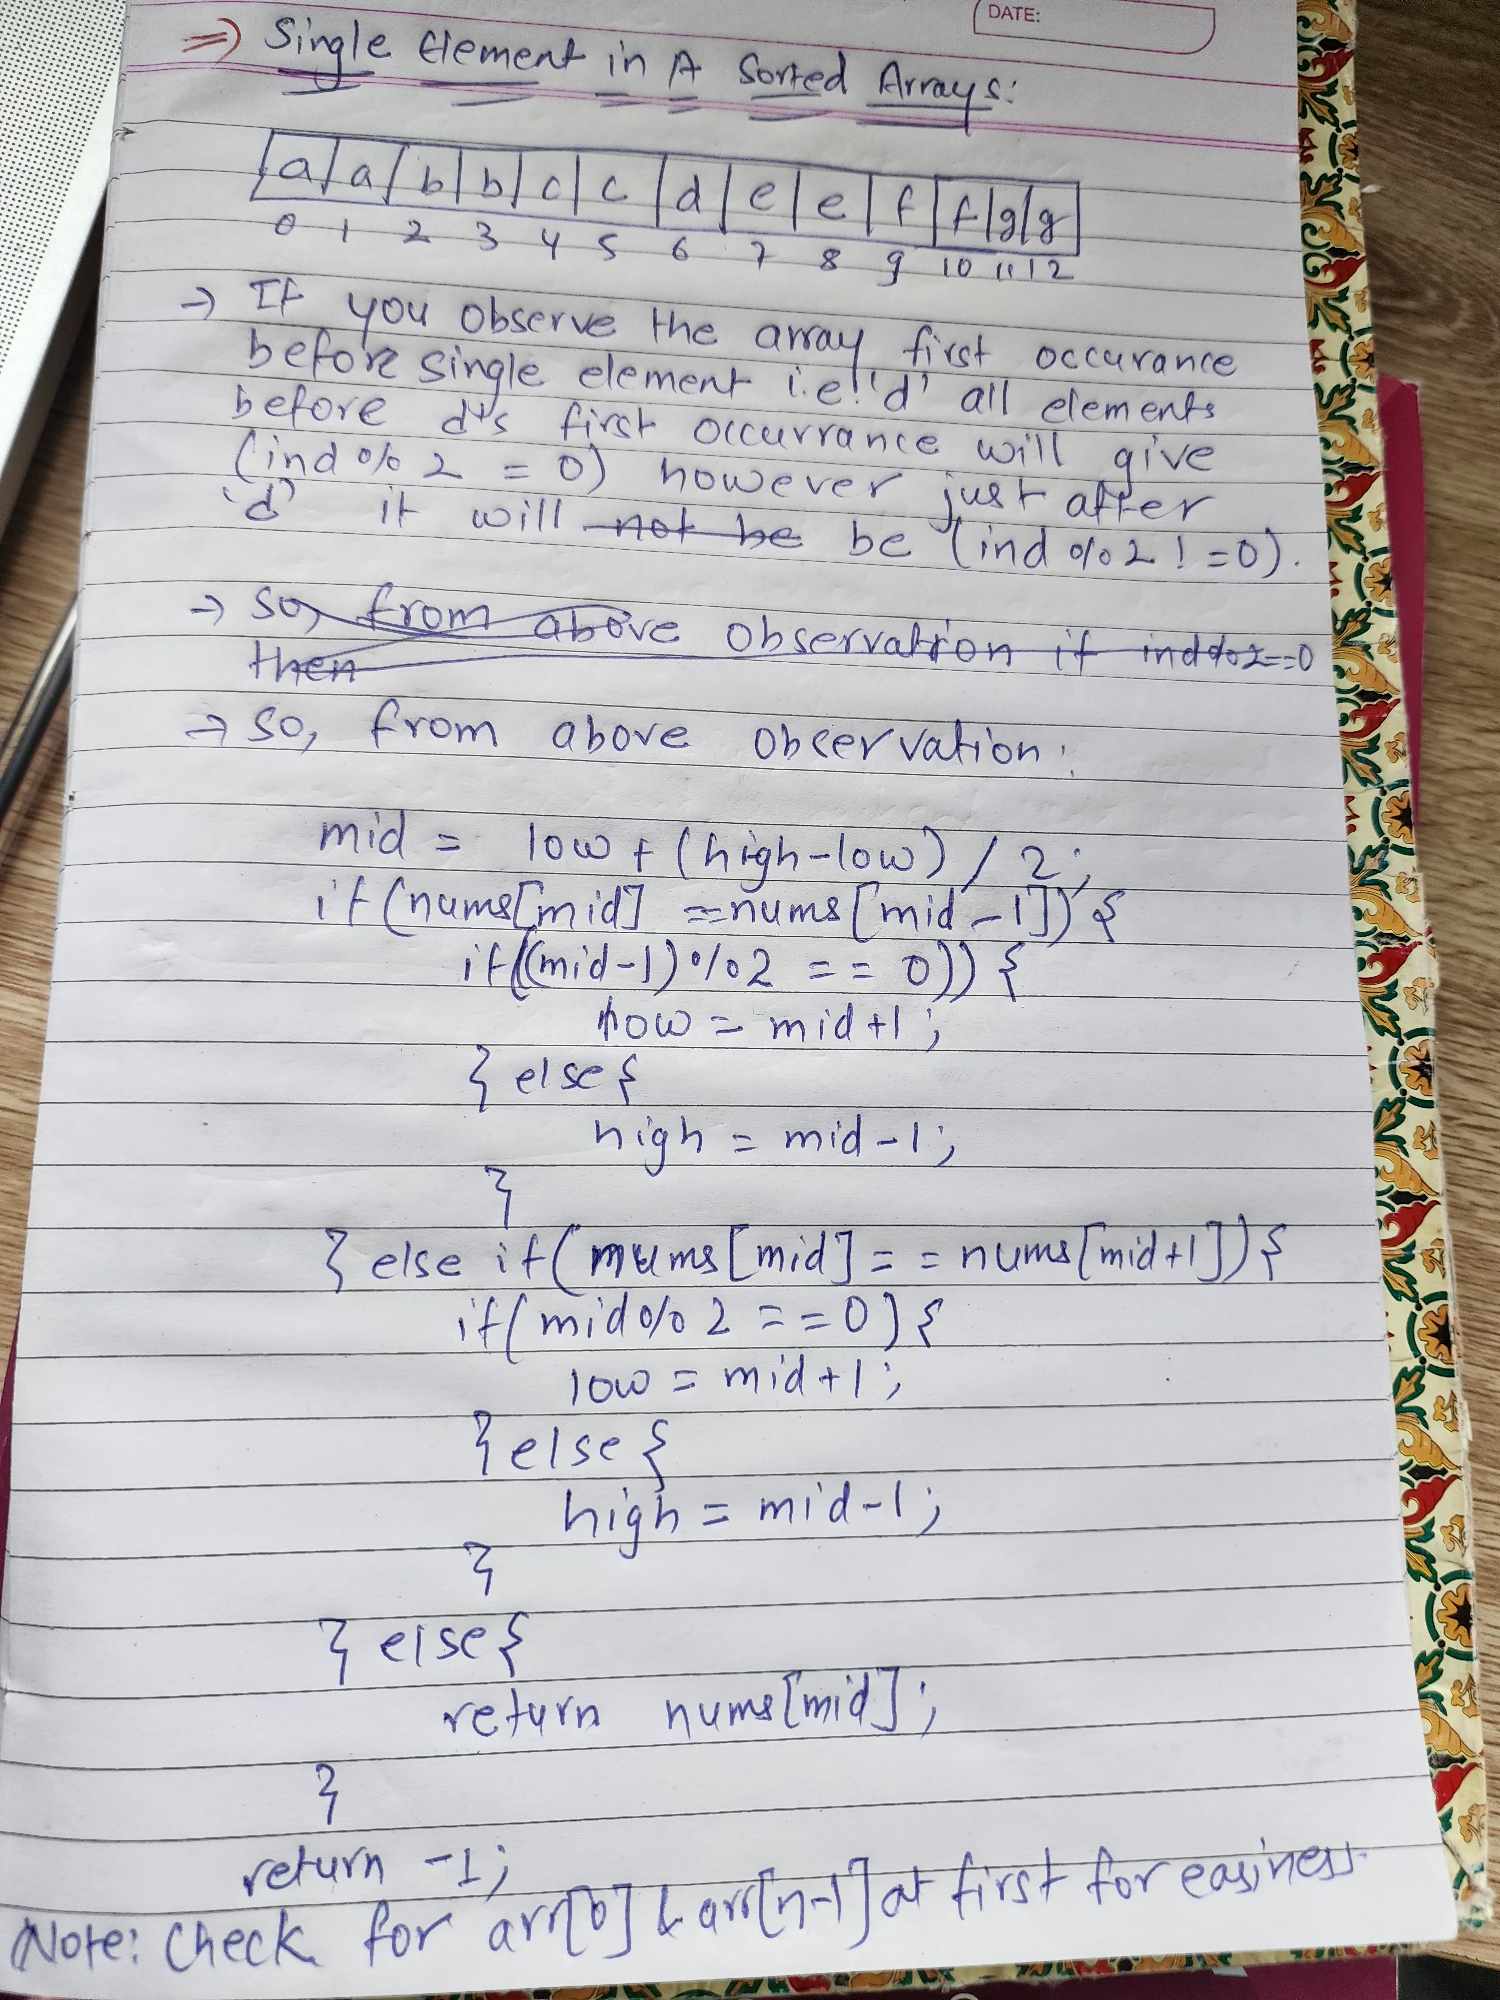 DATE:
=> Single Element in A Sorted Arrays:
a a b b c c d e e f f g g
0 1 2 3 4 5 6 7 8 9 10 11 12
→ If you observe the array first occurance
before single element i.e. 'd' all elements
before d's first occurrance will give
(ind % 2 = 0) however just after
'd' it will not be be (ind % 2 != 0).
→ so, from above observation if ind%2==0
then
→ so, from above obcervation:
mid = low + (high-low) / 2;
if(nums[mid] == nums[mid-1]){
if((mid-1)%2 == 0)){
low = mid+1;
} else{
high = mid-1;
}
} else if(nums[mid] == nums[mid+1]){
if(mid%2 ==0){
low = mid+1;
} else{
high = mid-1;
}
} else{
return nums[mid];
}
return -1;
Note: Check for arr[0] & arr[n-1] at first for easiness.